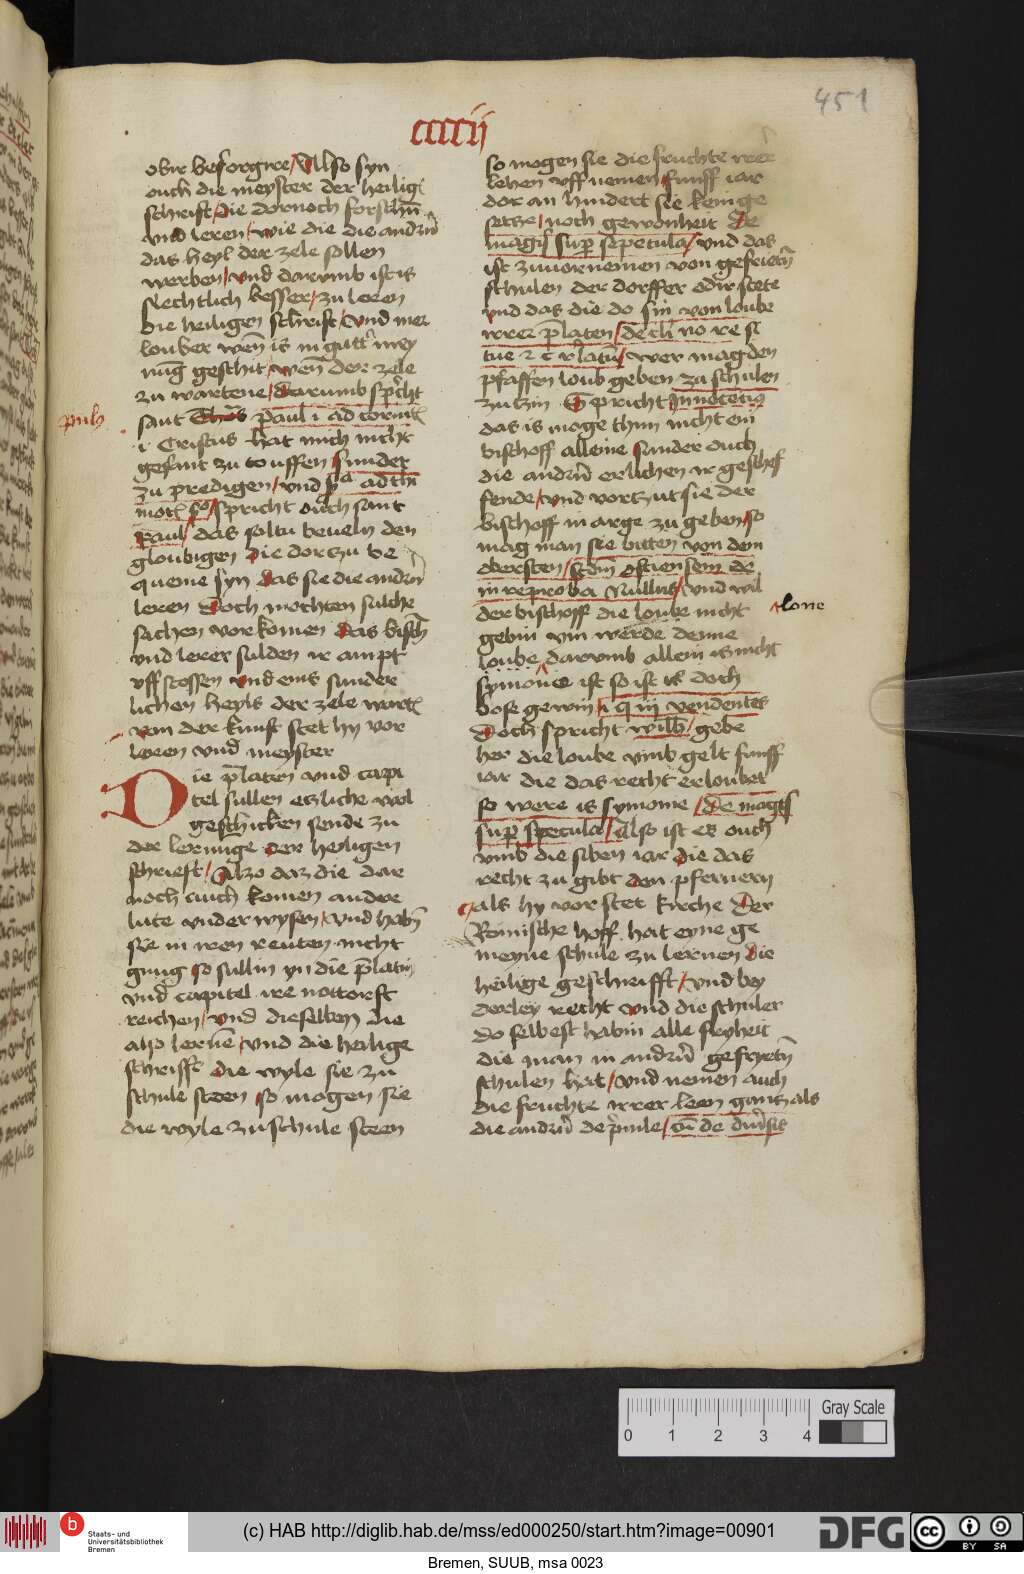 451
ccccij
obir besorgnre / Also syn
ouch die meyster der heilig
schrift / die dornoch forschn̄
vnd leren / wie die die andrn̄
das heyl der zele sollen
werben / vnd darvmb ist is
slechtlich besser / zu leren
die heiligen schrift / vnd mer
louber wen̄ is in gutt' mey
nūg geschit / wen̄ der zele
zu wartene / darumb spricht
pauls
sant paul i ad corint
i Cristus hat mich nicht
gesant zu touffen sunder
zu predigen / vnd ad thi
mot / spricht ouch sant
Paul / das soltu beueln den
gloubigen die dorzu be
queme syn das sie die andrn̄
leren doch mochten sulche
sachen vorkomen das bisch
vnd lerer sulden ir ampt
vff stossen vnd eins sunder
lichen heyls der zele wart
von der kunst stet hy vor
leren vnd meyster
Die p̄laten vnd capi
tel sullen etzliche wol
geschicken sende zu
der lernūge der heiligen
schrieft / Alzo daz die dar
noch auch komen andre
lute vnder wysen / vnd hab̄n
sie in iren renten nicht
gnug so sullin yn die p̄latin
vnd capitel ire nottorft
reichen / vnd dieselben die
also lernē / vnd die heilige
schrifft die wyle sie zu
schule steen so mogen sie
die wyle zu schule steen
so mogen sie die fruchte irrer
lehen vff nemen funff iar
dor an hindert sie kein ge
setze / noch gewonheit De
magis sup̄ specula / vnd das
ist zuuornemen von gefrietn̄
schulen der dorffer odir stete
vnd das die do sin von loube
irrer p̄laten / de cle no re si
tue 2 c relatū / wer mag den
pfaffen loub geben zu schulen
zu tzin Spricht Innocencius
das is moge thun nicht ein
bischoff alleine sunder ouch
die andrn̄ erlichen ir geschef
fende / vnd vortzut sie der
bischoff in arge zu geben / so
mag man sie bitten von dem
obersten / scdm ostiensem de
in reproba Nullus / vnd wil
der bischoff die loube nicht
lone
gebin vm werde denne
loube darvmb allein is nicht
symonie ist so ist is doch
bose gewin / i q iij vendentes
Doch spricht wilh / gebe
her die loube vmb gelt funff
iar die das recht erloubet
so were is symonie / de magis
sup̄ specula / Also ist es ouch
vmb die siben iar die das
recht zu gibt den pfernern
als hy vor stet kirche Der
Romische hoff hat eyne ge
meyne schule zu lernen die
heilige geschrifft / vnd bey
derley recht vnd die schuler
do selbest habin alle fryheit
die man in andrn̄ gefryetn̄
schulen hat / vnd nemen auch
die fruchte irrer leen gantz als
die andrn̄ de p̄uile / cū de diu'sis
0 1 2 3 4
Gray Scale
b
Staats- und
Universitätsbibliothek
Bremen
(c) HAB http://diglib.hab.de/mss/ed000250/start.htm?image=00901
DFG
cc BY SA
Bremen, SUUB, msa 0023